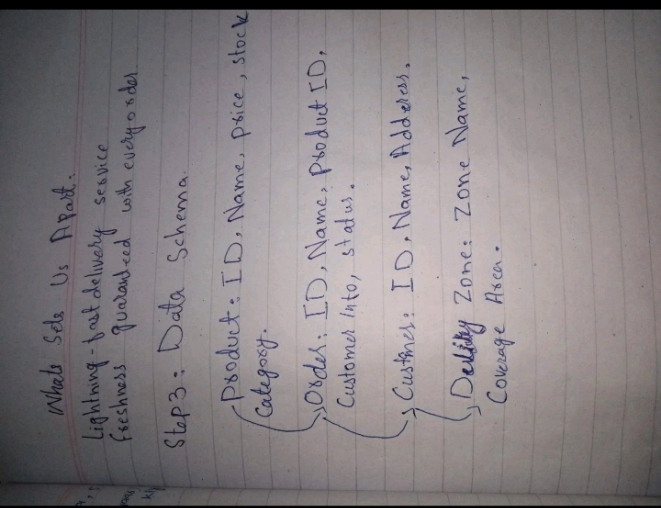 Whats Sets Us Apart:
Lightning-fast delivery service
freshness guaranteed with every order
Step3: Data Schema.
Product: ID, Name, price, stock
Category.
Order: ID, Name, Product ID,
Customer Info, status.
Custmer: ID, Name, Address.
Delivey Zone: Zone Name,
Coverage Area.